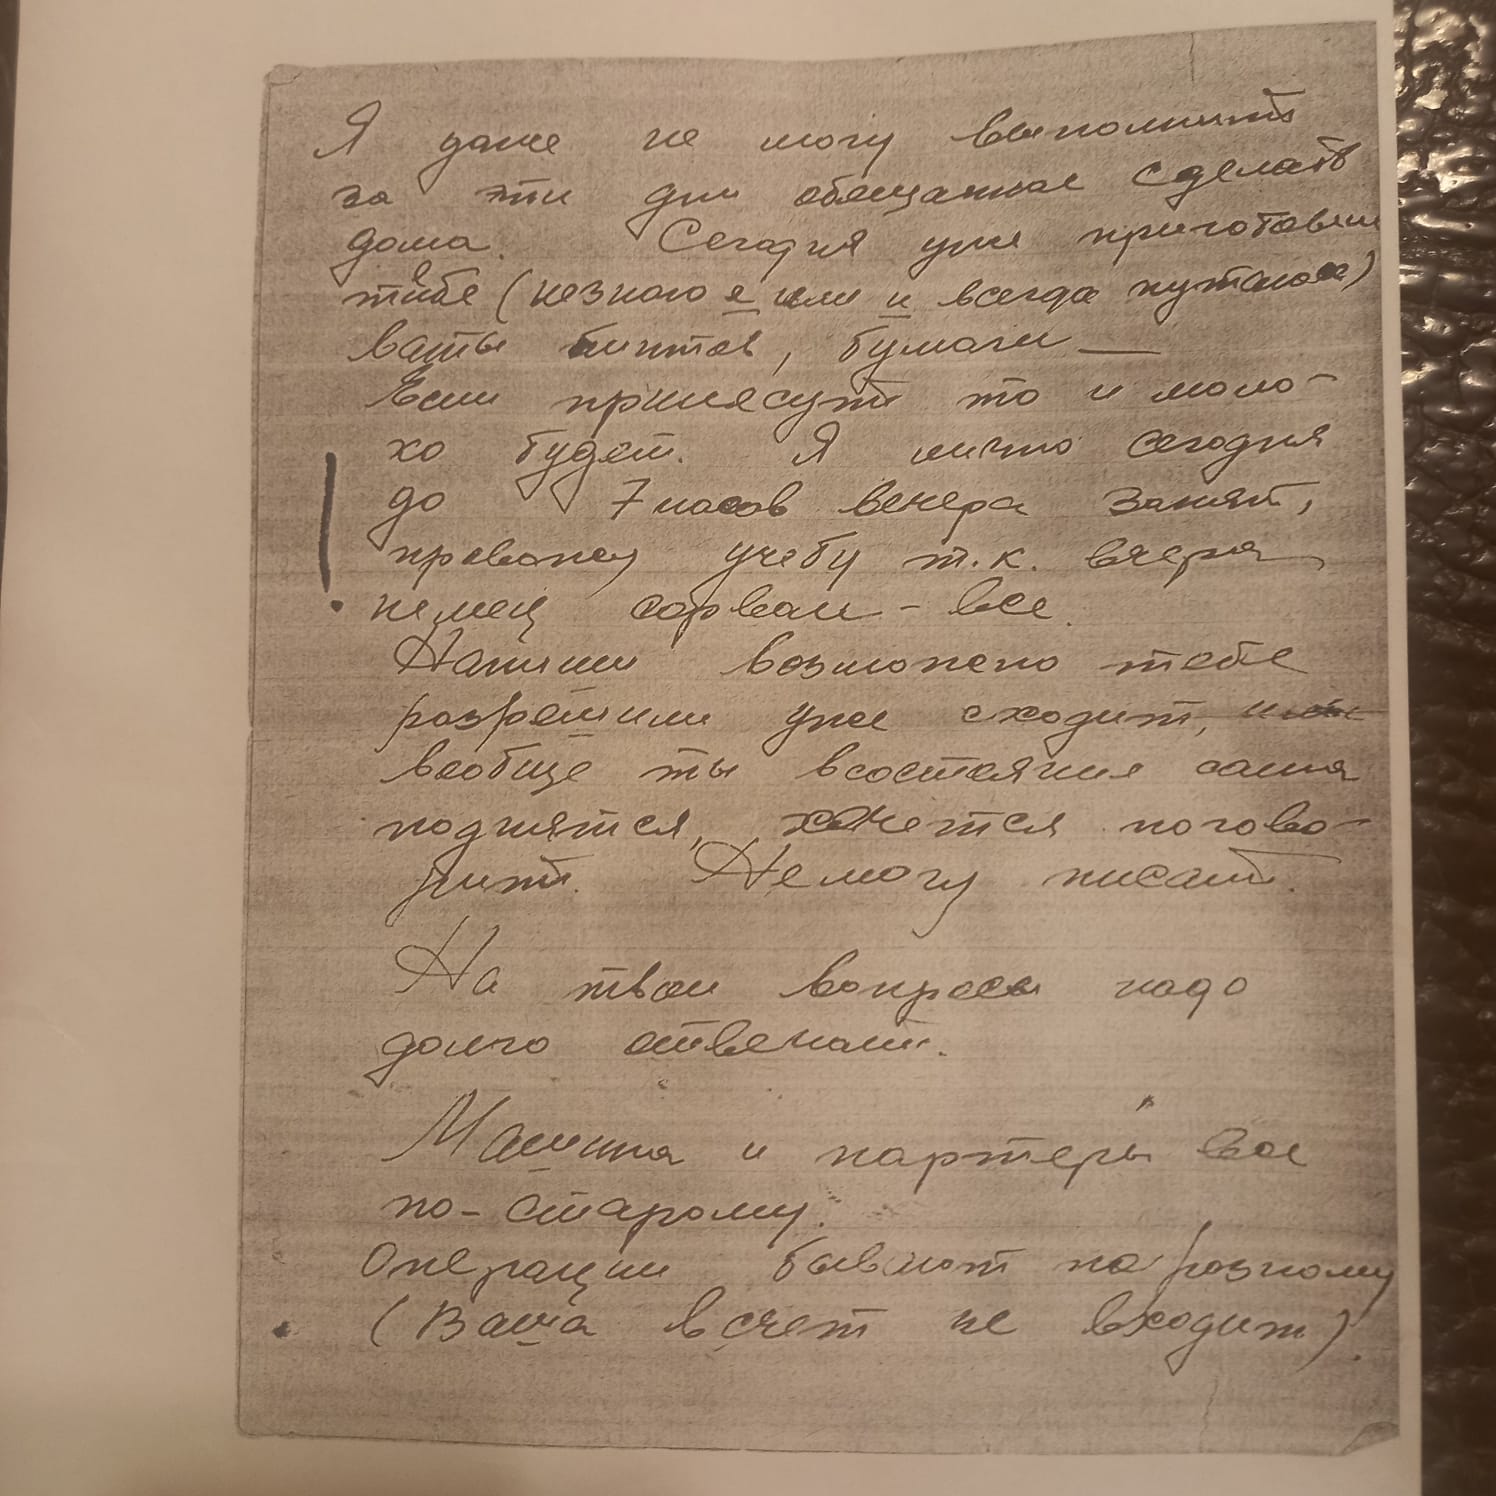 Я даже не могу выполнить
за эти дни обещанное сделать
дома. Сегодня уже приготовили
тебе (незнаю е или и всегда путаюсе)
ваты бинтов, бумаги —
Если принесут то и моло-
ко будет. Я лично сегодня
до 7 часов вечера занят,
провожу учебу т.к. вчера
немец сорвал - все.
Напиши возможено тебе
разрешили уже сходит,
вообще ты всостояние сама
поднятся, хочется погово-
рить. Немогу писать.
На твои вопросы надо
долго отвечать.
Машина и партеръ все
по-старому.
Операции бывают по разному
(Ваша всчет не входит).